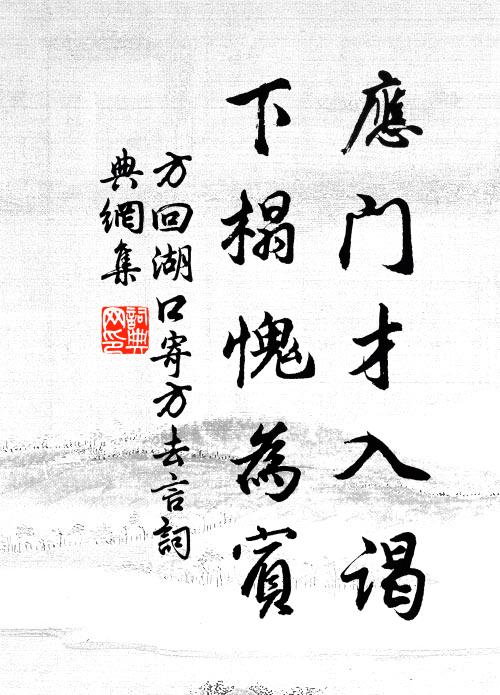 應門才入謁
下榻愧為賓
方回湖口寄方去言詞
典網集
詞典网印